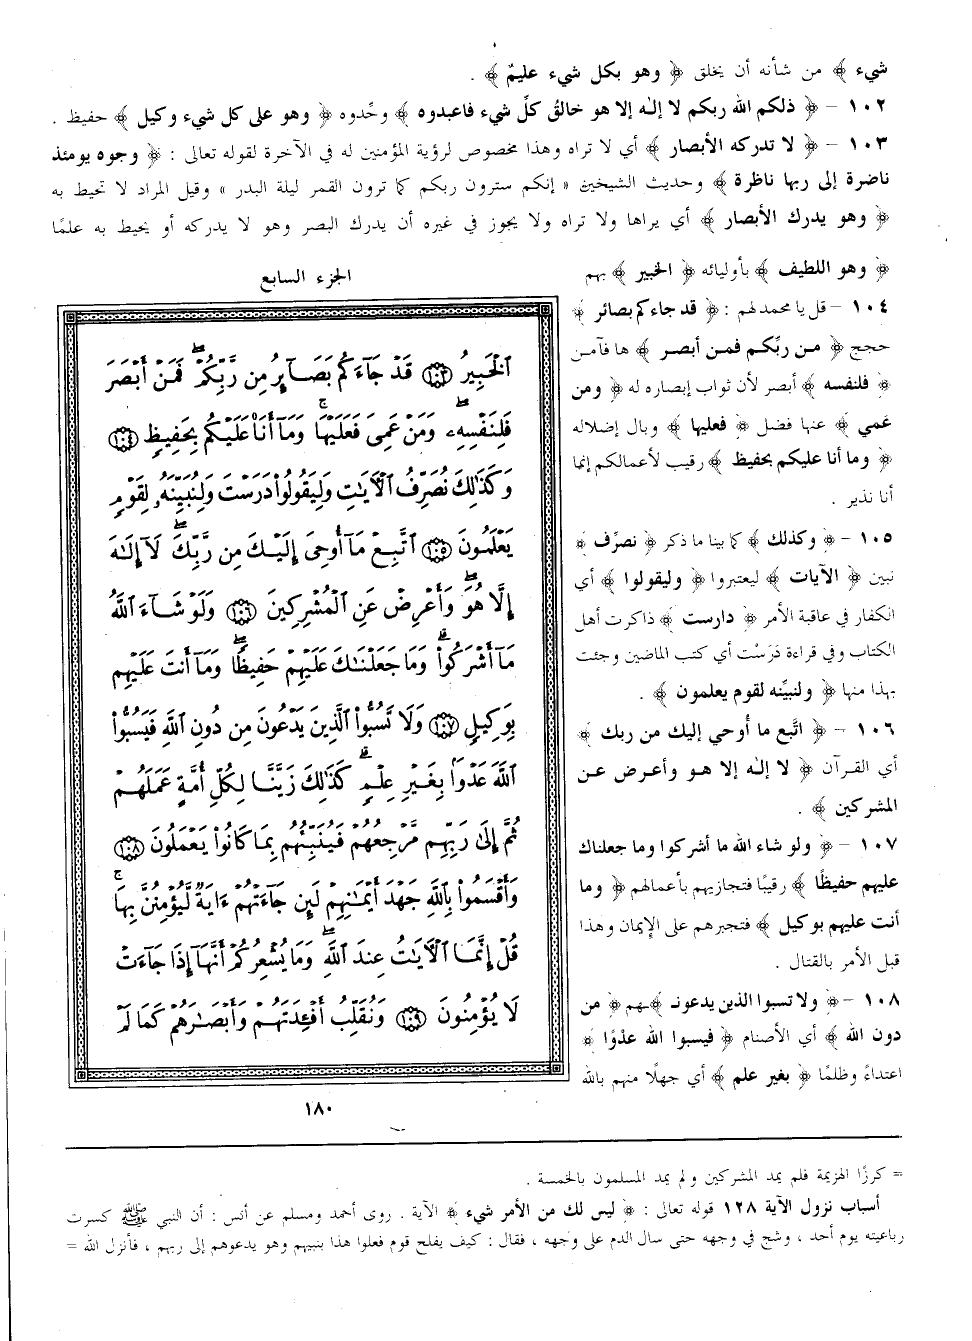 شيء ﴾ من شأنه أن يخلق ﴿ وهو بكل شيء عليمٌ ﴾ .
١٠٢ – ﴿ ذلكم الله ربكم لا إلٰه إلا هو خالقُ كلِّ شيء فاعبدوه ﴾ وحِّدوه ﴿ وهو على كل شيء وكيل ﴾ حفيظ .
١٠٣ – ﴿ لا تدركه الأبصار ﴾ أي لا تراه وهذا مخصوص لرؤية المؤمنين له في الآخرة لقوله تعالى : ﴿ وجوه يومئذ
ناضرة إلى ربها ناظرة ﴾ وحديث الشيخين « إنكم سترون ربكم كما ترون القمر ليلة البدر » وقيل المراد لا تحيط به
﴿ وهو يدرك الأبصار ﴾ أي يراها ولا تراه ولا يجوز في غيره أن يدرك البصر وهو لا يدركه أو يحيط به علمًا
﴿ وهو اللطيف ﴾ بأوليائه ﴿ الخبير ﴾ بهم
١٠٤ – قل يا محمد لهم : ﴿ قد جاءكم بصائر ﴾
حجج ﴿ من ربِّكم فمن أبصر ﴾ ها فآمن
﴿ فلنفسه ﴾ أبصر لأن ثواب إبصاره له ﴿ ومن
عَمي ﴾ عنها فضل ﴿ فعليها ﴾ وبال إضلاله
﴿ وما أنا عليكم بحفيظ ﴾ رقيب لأعمالكم إنما
أنا نذير .
١٠٥ – ﴿ وكذلك ﴾ كما بينا ما ذكر ﴿ نصرِّف ﴾
نبين ﴿ الآيات ﴾ ليعتبروا ﴿ وليقولوا ﴾ أي
الكفار في عاقبة الأمر ﴿ دارست ﴾ ذاكرت أهل
الكتاب وفي قراءة دَرَسْت أي كتب الماضين وجئت
بهذا منها ﴿ ولنبيِّنه لقوم يعلمون ﴾ .
١٠٦ – ﴿ اتَّبع ما أوحي إليك من ربك ﴾
أي القرآن ﴿ لا إلٰه إلا هو وأعرض عن
المشركين ﴾ .
١٠٧ – ﴿ ولو شاء الله ما أشركوا وما جعلناك
عليهم حفيظًا ﴾ رقيبًا فتجازيهم بأعمالهم ﴿ وما
أنت عليهم بوكيل ﴾ فتجبرهم على الإيمان وهذا
قبل الأمر بالقتال .
١٠٨ – ﴿ ولا تسبوا الذين يدعونـ ﴾ـهم ﴿ من
دون الله ﴾ أي الأصنام ﴿ فيسبوا الله عدْوًا ﴾
اعتداءً وظلمًا ﴿ بغير علم ﴾ أي جهلًا منهم بالله
الجزء السابع
ٱلْخَبِيرُ ١٠٣ قَدْ جَآءَكُم بَصَآئِرُ مِن رَّبِّكُمْ ۖ فَمَنْ أَبْصَرَ
فَلِنَفْسِهِۦ ۖ وَمَنْ عَمِىَ فَعَلَيْهَا ۚ وَمَآ أَنَا۠ عَلَيْكُم بِحَفِيظٍ ١٠٤
وَكَذَٰلِكَ نُصَرِّفُ ٱلْـَٔايَـٰتِ وَلِيَقُولُوا۟ دَرَسْتَ وَلِنُبَيِّنَهُۥ لِقَوْمٍ
يَعْلَمُونَ ١٠٥ ٱتَّبِعْ مَآ أُوحِىَ إِلَيْكَ مِن رَّبِّكَ ۖ لَآ إِلَـٰهَ
إِلَّا هُوَ ۖ وَأَعْرِضْ عَنِ ٱلْمُشْرِكِينَ ١٠٦ وَلَوْ شَآءَ ٱللَّهُ
مَآ أَشْرَكُوا۟ ۗ وَمَا جَعَلْنَـٰكَ عَلَيْهِمْ حَفِيظًا ۖ وَمَآ أَنتَ عَلَيْهِم
بِوَكِيلٍ ١٠٧ وَلَا تَسُبُّوا۟ ٱلَّذِينَ يَدْعُونَ مِن دُونِ ٱللَّهِ فَيَسُبُّوا۟
ٱللَّهَ عَدْوًۢا بِغَيْرِ عِلْمٍ ۗ كَذَٰلِكَ زَيَّنَّا لِكُلِّ أُمَّةٍ عَمَلَهُمْ
ثُمَّ إِلَىٰ رَبِّهِم مَّرْجِعُهُمْ فَيُنَبِّئُهُم بِمَا كَانُوا۟ يَعْمَلُونَ ١٠٨
وَأَقْسَمُوا۟ بِٱللَّهِ جَهْدَ أَيْمَـٰنِهِمْ لَئِن جَآءَتْهُمْ ءَايَةٌ لَّيُؤْمِنُنَّ بِهَا ۚ
قُلْ إِنَّمَا ٱلْـَٔايَـٰتُ عِندَ ٱللَّهِ ۖ وَمَا يُشْعِرُكُمْ أَنَّهَآ إِذَا جَآءَتْ
لَا يُؤْمِنُونَ ١٠٩ وَنُقَلِّبُ أَفْـِٔدَتَهُمْ وَأَبْصَـٰرَهُمْ كَمَا لَمْ
١٨٠
= كرزًا الهزيمة فلم يمد المشركين ولم يمد المسلمون بالخمسة .
أسباب نزول الآية ١٢٨ قوله تعالى : ﴿ ليس لك من الأمر شيء ﴾ الآية . روى أحمد ومسلم عن أنس : أن النبي ﷺ كسرت
رباعيته يوم أحد ، وشج في وجهه حتى سال الدم على وجهه ، فقال : كيف يفلح قوم فعلوا هذا بنبيهم وهو يدعوهم إلى ربهم ، فأنزل الله =